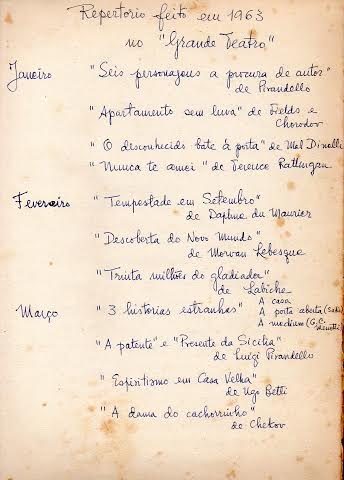 Repertorio feito em 1963
no "Grande Teatro"
Janeiro "Seis personagens a procura de autor"
de Pirandello
"Apartamento sem luva" de Fields e
Chorodov
"O desconhecido bate à porta" de Mel Dinelli
"Nunca te amei" de Terence Rattingan
Fevereiro "Tempestade em Setembro"
de Daphne du Maurier
"Descoberta do Novo Mundo"
de Morvan Lebesque
"Trinta milhões do gladiador"
de Labiche
Março "3 historias estranhas" A casa
A porta aberta (Saki)
A medium (G.C. Menotti)
"A patente" e "Presente da Sicilia"
de Luigi Pirandello
"Espiritismo em Casa Velha"
de Ugo Betti
"A dama do cachorrinho"
de Chekov